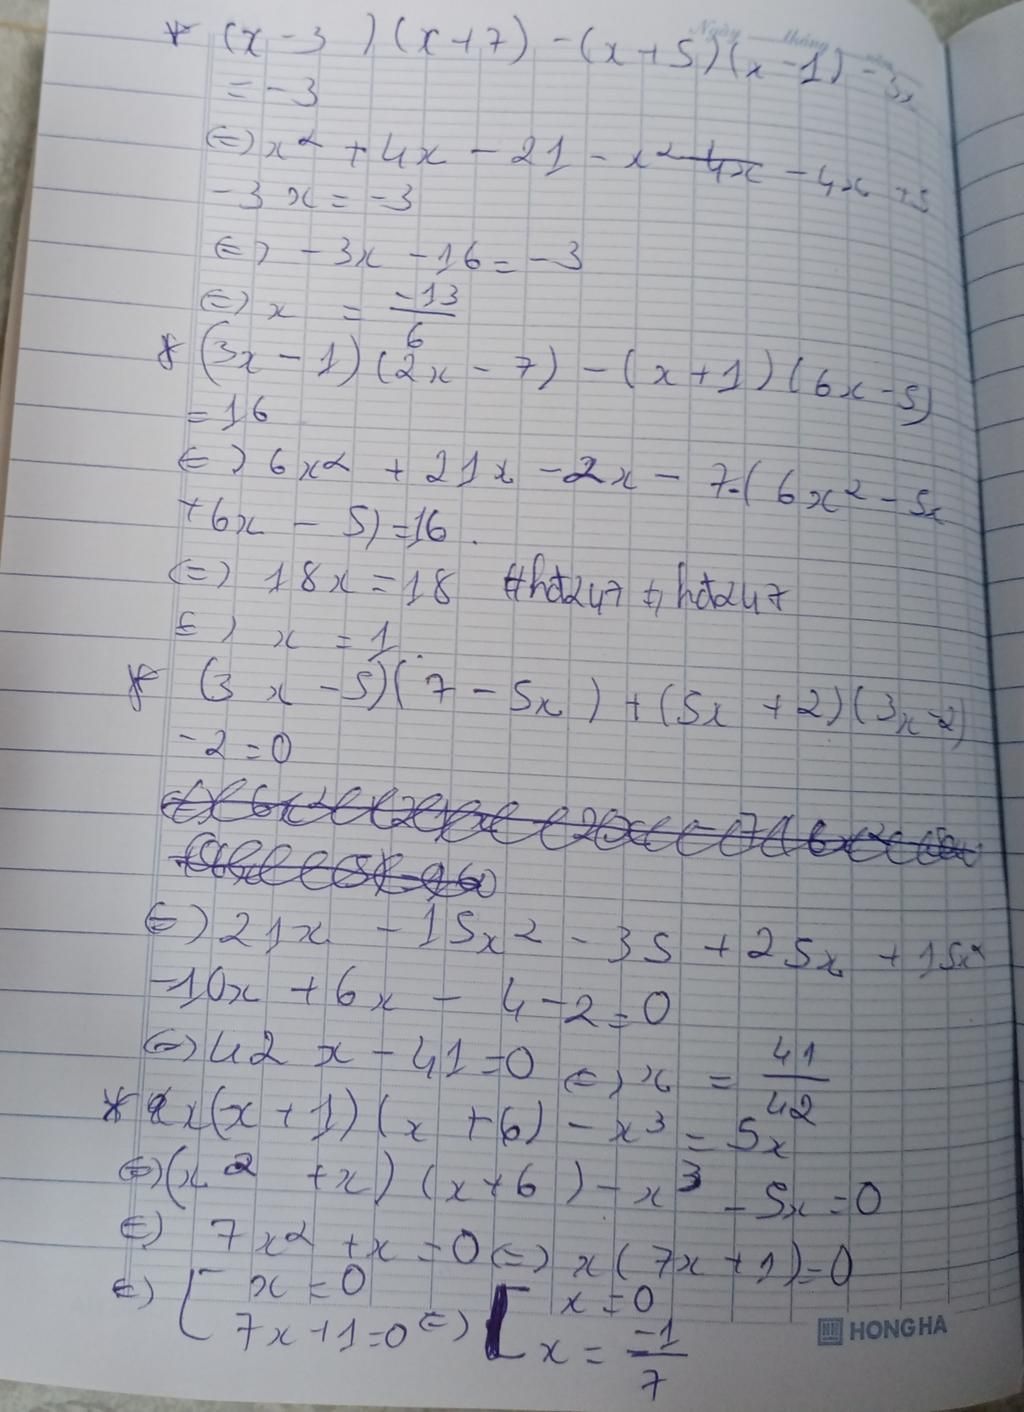 Ngày tháng năm
* (x - 3 ) (x + 7) - (x + 5) (x - 1) - 3x
= -3
⇔ x² + 4x - 21 - x² - 4x + 5
- 3x = -3
⇔ - 3x - 16 = -3
⇔ x = -13/6
* (3x - 1) (2x - 7) - (x + 1) (6x - 5)
= 16
⇔ 6x² + 21x - 2x - 7 - ( 6x² - 5x
+ 6x - 5) = 16 .
⇔ 18x = 18 #hđ247 #hđ247
⇔ x = 1 .
* (3x - 5) (7 - 5x) + (5x + 2) (3x - 2)
- 2 = 0
⇔ 21x - 15x² - 35 + 25x + 15x²
- 10x + 6x - 4 - 2 = 0
⇔ 42x - 41 = 0 ⇔ x = 41/42
* x(x + 1) (x + 6) - x³ = 5x
⇔ (x² + x) (x + 6) - x³ - 5x = 0
⇔ 7x² + x = 0 ⇔ x(7x + 1) = 0
⇔ [ x = 0
7x + 1 = 0 ⇔ [ x = 0
x = -1/7
HONG HA